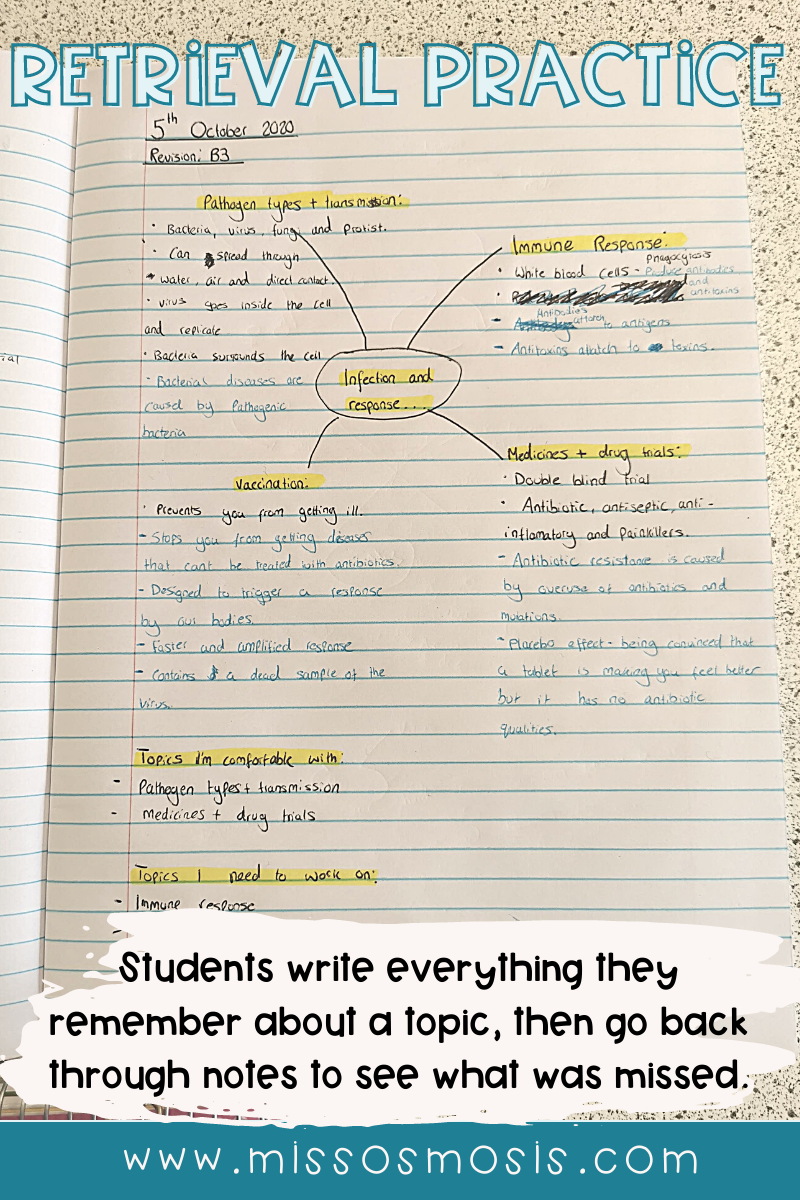 RETRIEVAL PRACTICE
5th October 2020
Revision: B3
Pathogen types + transmission:
• Bacteria, virus, fungi and Protist.
• Can spread through
water, air and direct contact.
• virus goes inside the cell
and replicate
• Bacteria surrounds the cell
- Bacterial diseases are
caused by Pathogenic
bacteria
Immune Response:
Phagocytosis
• White blood cells - Produce antibodies
and
antitoxins
Antibodies
- attach to antigens
- Antitoxins attatch to toxins.
Infection and
response...
Vaccination:
• Prevents you from getting ill.
- Stops you from getting diseases
that cant be treated with antibiotics.
- Designed to trigger a response
by our bodies.
- faster and amplified response
- Contains a dead sample of the
virus.
Medicines + drug trials:
• Double blind trial
• Antibiotic, antiseptic, anti-
inflamatory and Painkillers.
- Antibiotic resistance is caused
by overuse of antibiotics and
mutations.
- Placebo effect - being convinced that
a tablet is making you feel better
but it has no antibiotic
qualities.
Topics I'm comfortable with:
- Pathogen types + transmission
- Medicines + drug trials
Topics I need to work on:
- Immune response
Students write everything they
remember about a topic, then go back
through notes to see what was missed.
www.missosmosis.com